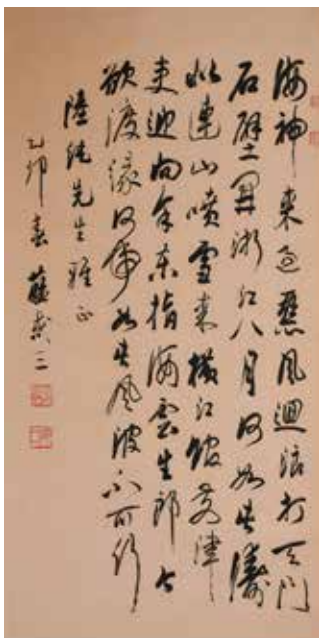 海神來過惡風迴浪打天門
石壁開浙江八月何如此濤
似連山噴雪來橫江館前津
吏迎向余東指海雲生郎今
欲渡緣何事如此風波不可行
陸純先生雅正
乙卯春